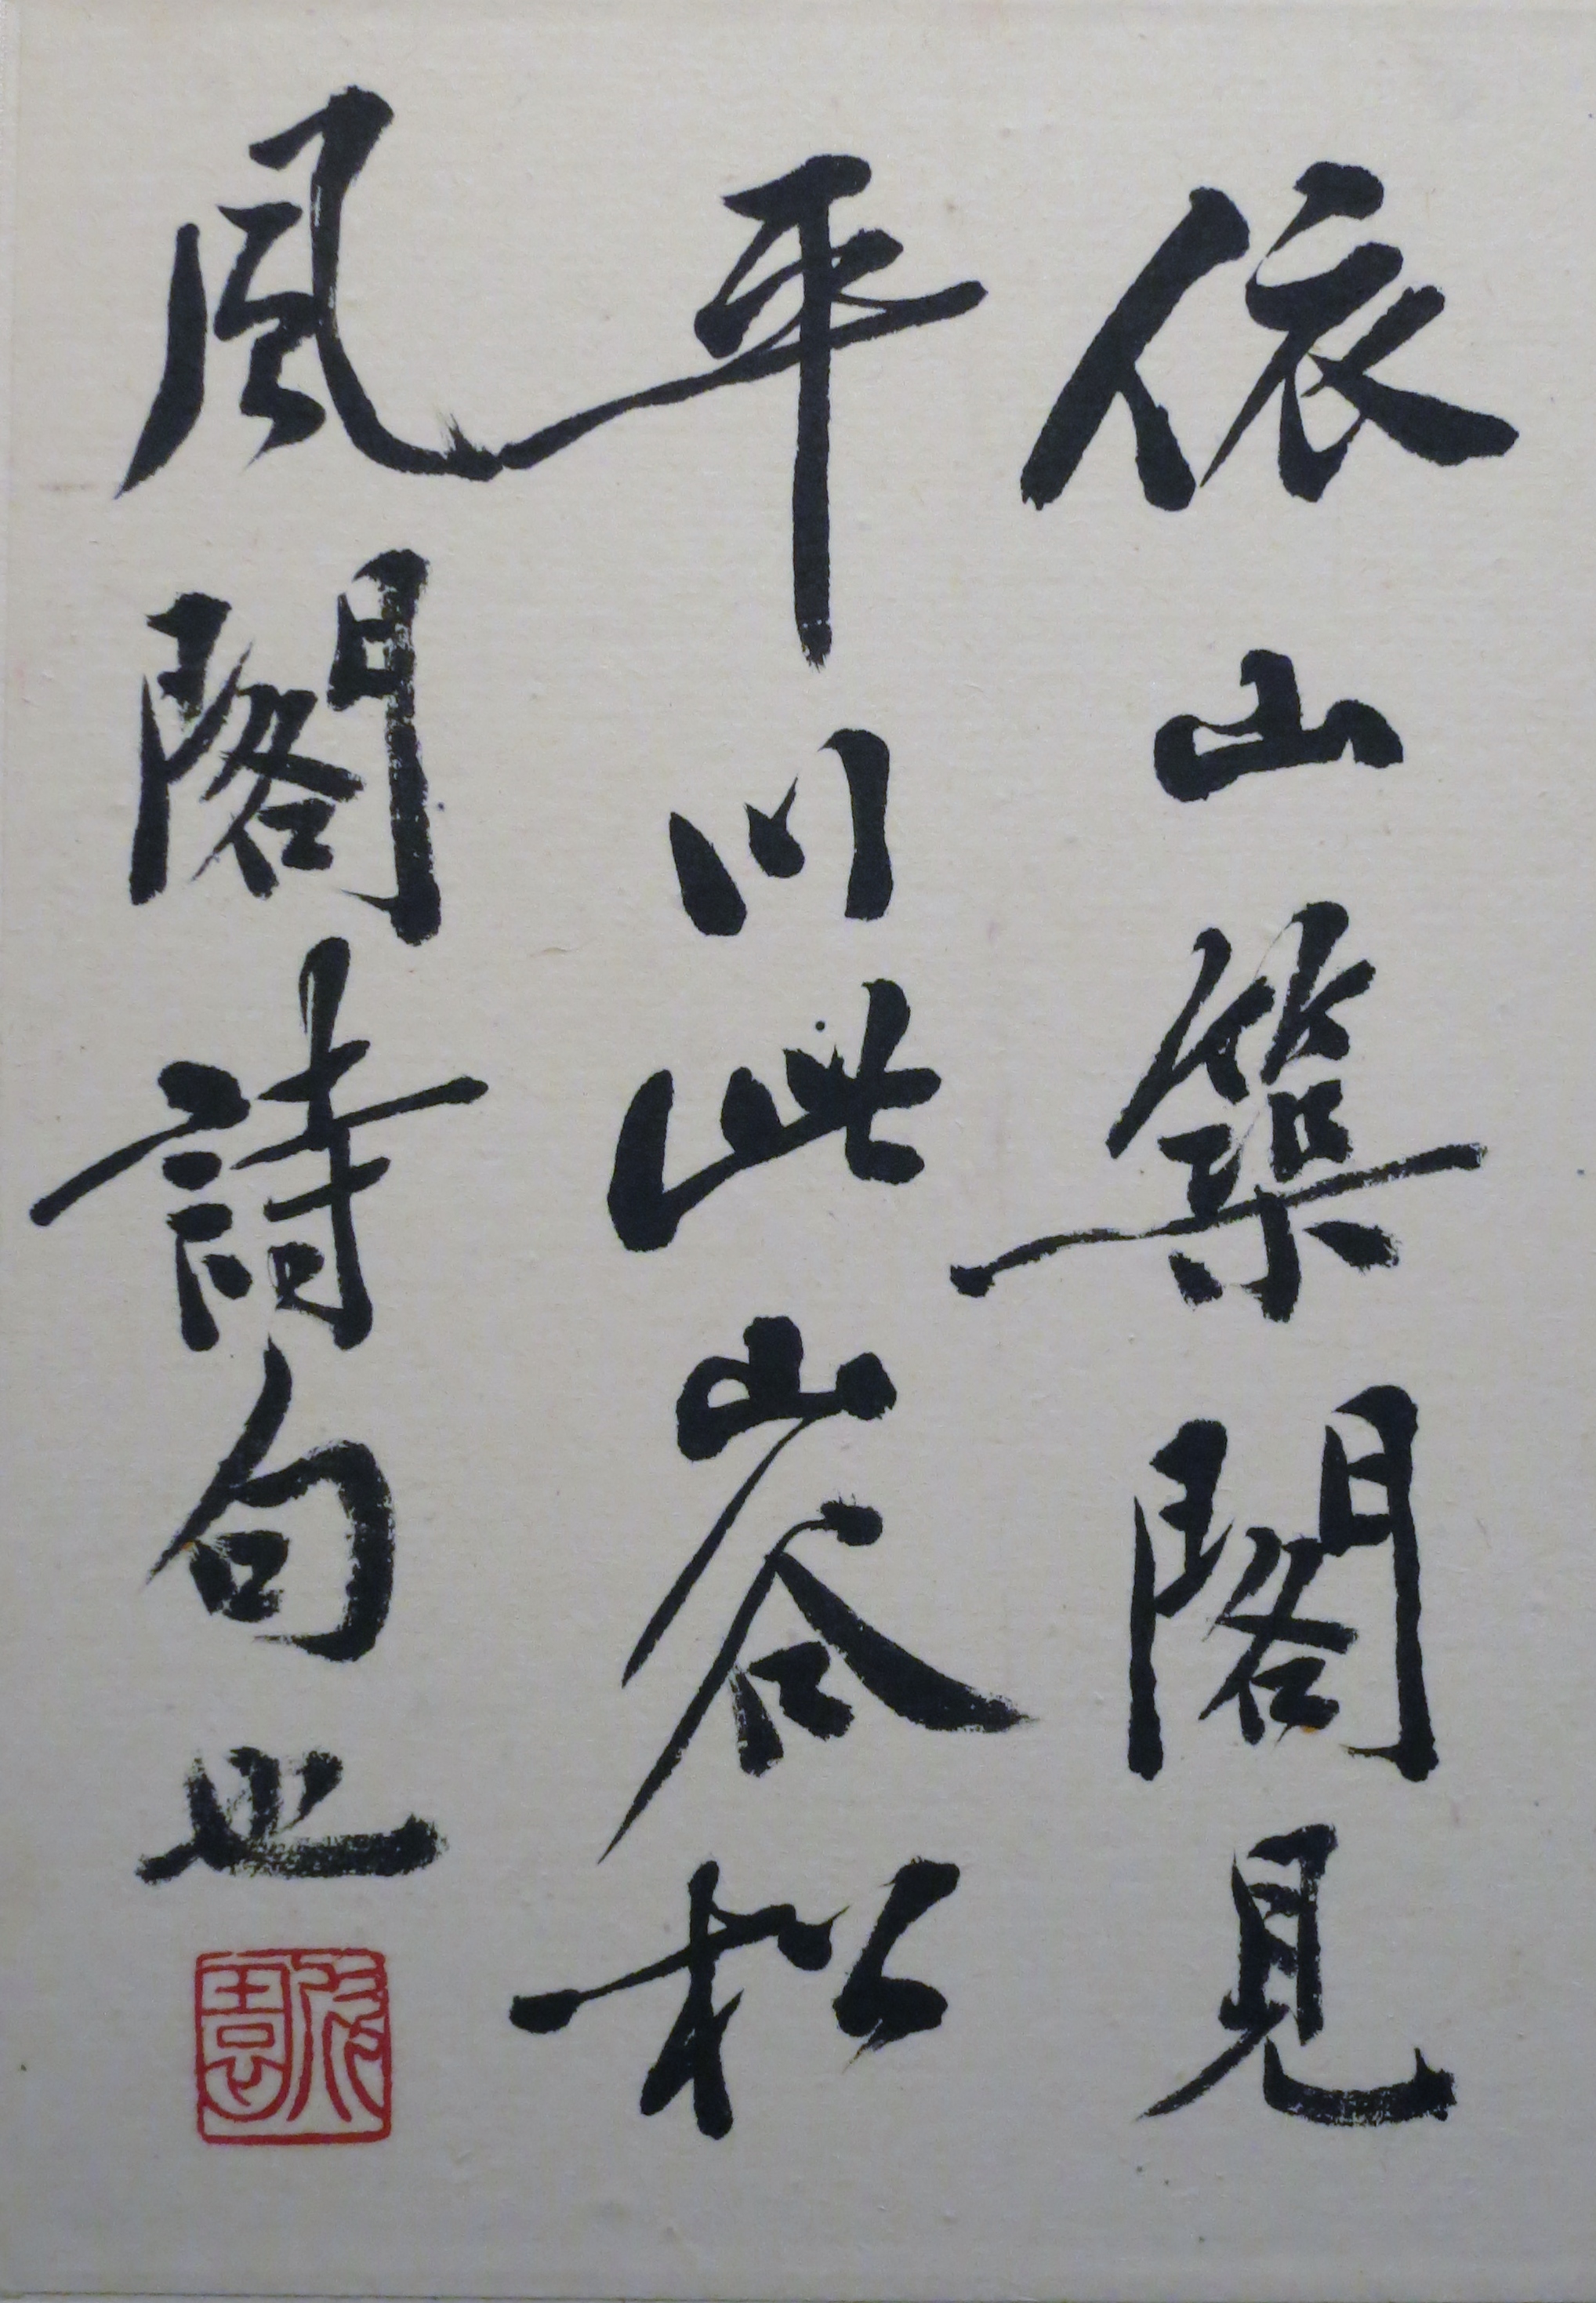 依山築閣見
平川此山谷松
風閣詩句也